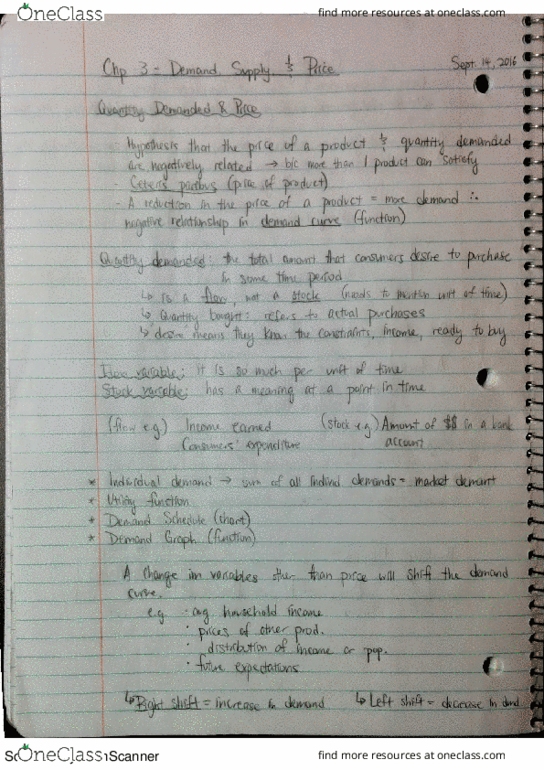 OneClass
find more resources at oneclass.com
Sept. 14, 2016
Chp 3 = Demand, Supply, & Price
Quantity Demanded & Price
- Hypothesis that the price of a product & quantity demanded
are negatively related → b/c more than 1 product can satisfy
- Ceteris paribus (price of product)
- A reduction in the price of a product = more demand ∴
negative relationship in demand curve (function)
Quantity demanded: the total amount that consumers desire to purchase
in some time period
↳ is a flow, not a stock (needs to mention unit of time)
↳ Quantity bought: refers to actual purchases
↳ desire means they know the constraints, income, ready to buy
Flow variable: it is so much per unit of time
Stock variable: has a meaning at a point in time
(flow e.g.) Income earned (stock e.g.) Amount of $$ in a bank
Consumers' expenditure account
* Individual demand → sum of all individ demands = market demand
* Utility function
* Demand Schedule (chart)
* Demand Graph (function)
A change in variables other than price will shift the demand
curve.
e.g. - avg household income
· prices of other prod.
· distribution of income or pop.
· future expectations
↳ Right shift = increase in demand ↳ Left shift = decrease in
OneClass
Scanner
find more resources at oneclass.com